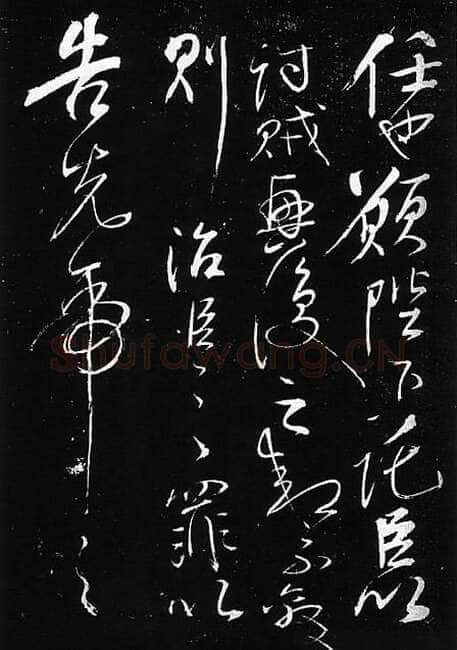 任也願陛下託臣以
討賊興復之效不效
則治臣之罪以
告先帝之
Shufawang.CN